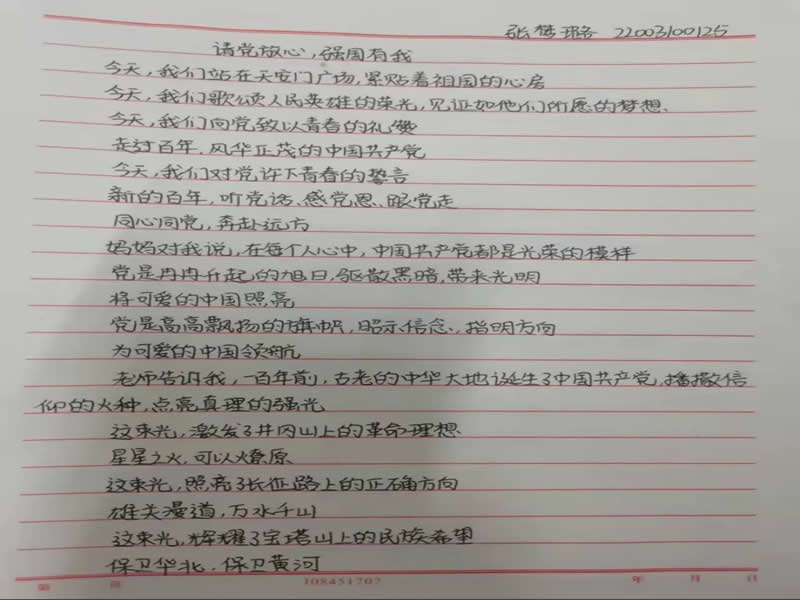 张梦璐 22003100125
请党放心,强国有我
今天,我们站在天安门广场,紧贴着祖国的心房
今天,我们歌颂人民英雄的荣光,见证如他们所愿的梦想.
今天,我们向党致以青春的礼赞
走过百年,风华正茂的中国共产党
今天,我们对党许下青春的誓言
新的百年,听党话、感党恩、跟党走
同心向党,奔赴远方
妈妈对我说,在每个人心中,中国共产党都是光荣的模样
党是冉冉升起的旭日,驱散黑暗,带来光明
将可爱的中国照亮
党是高高飘扬的旗帜,昭示信念、指明方向
为可爱的中国领航
老师告诉我,一百年前,古老的中华大地诞生了中国共产党,播撒信
仰的火种,点亮真理的强光
这束光,激发了井冈山上的革命理想
星星之火,可以燎原
这束光,照亮了长征路上的正确方向
雄关漫道,万水千山
这束光,辉耀了宝塔山上的民族希望
保卫华北,保卫黄河
第 页 108451707 年 月 日